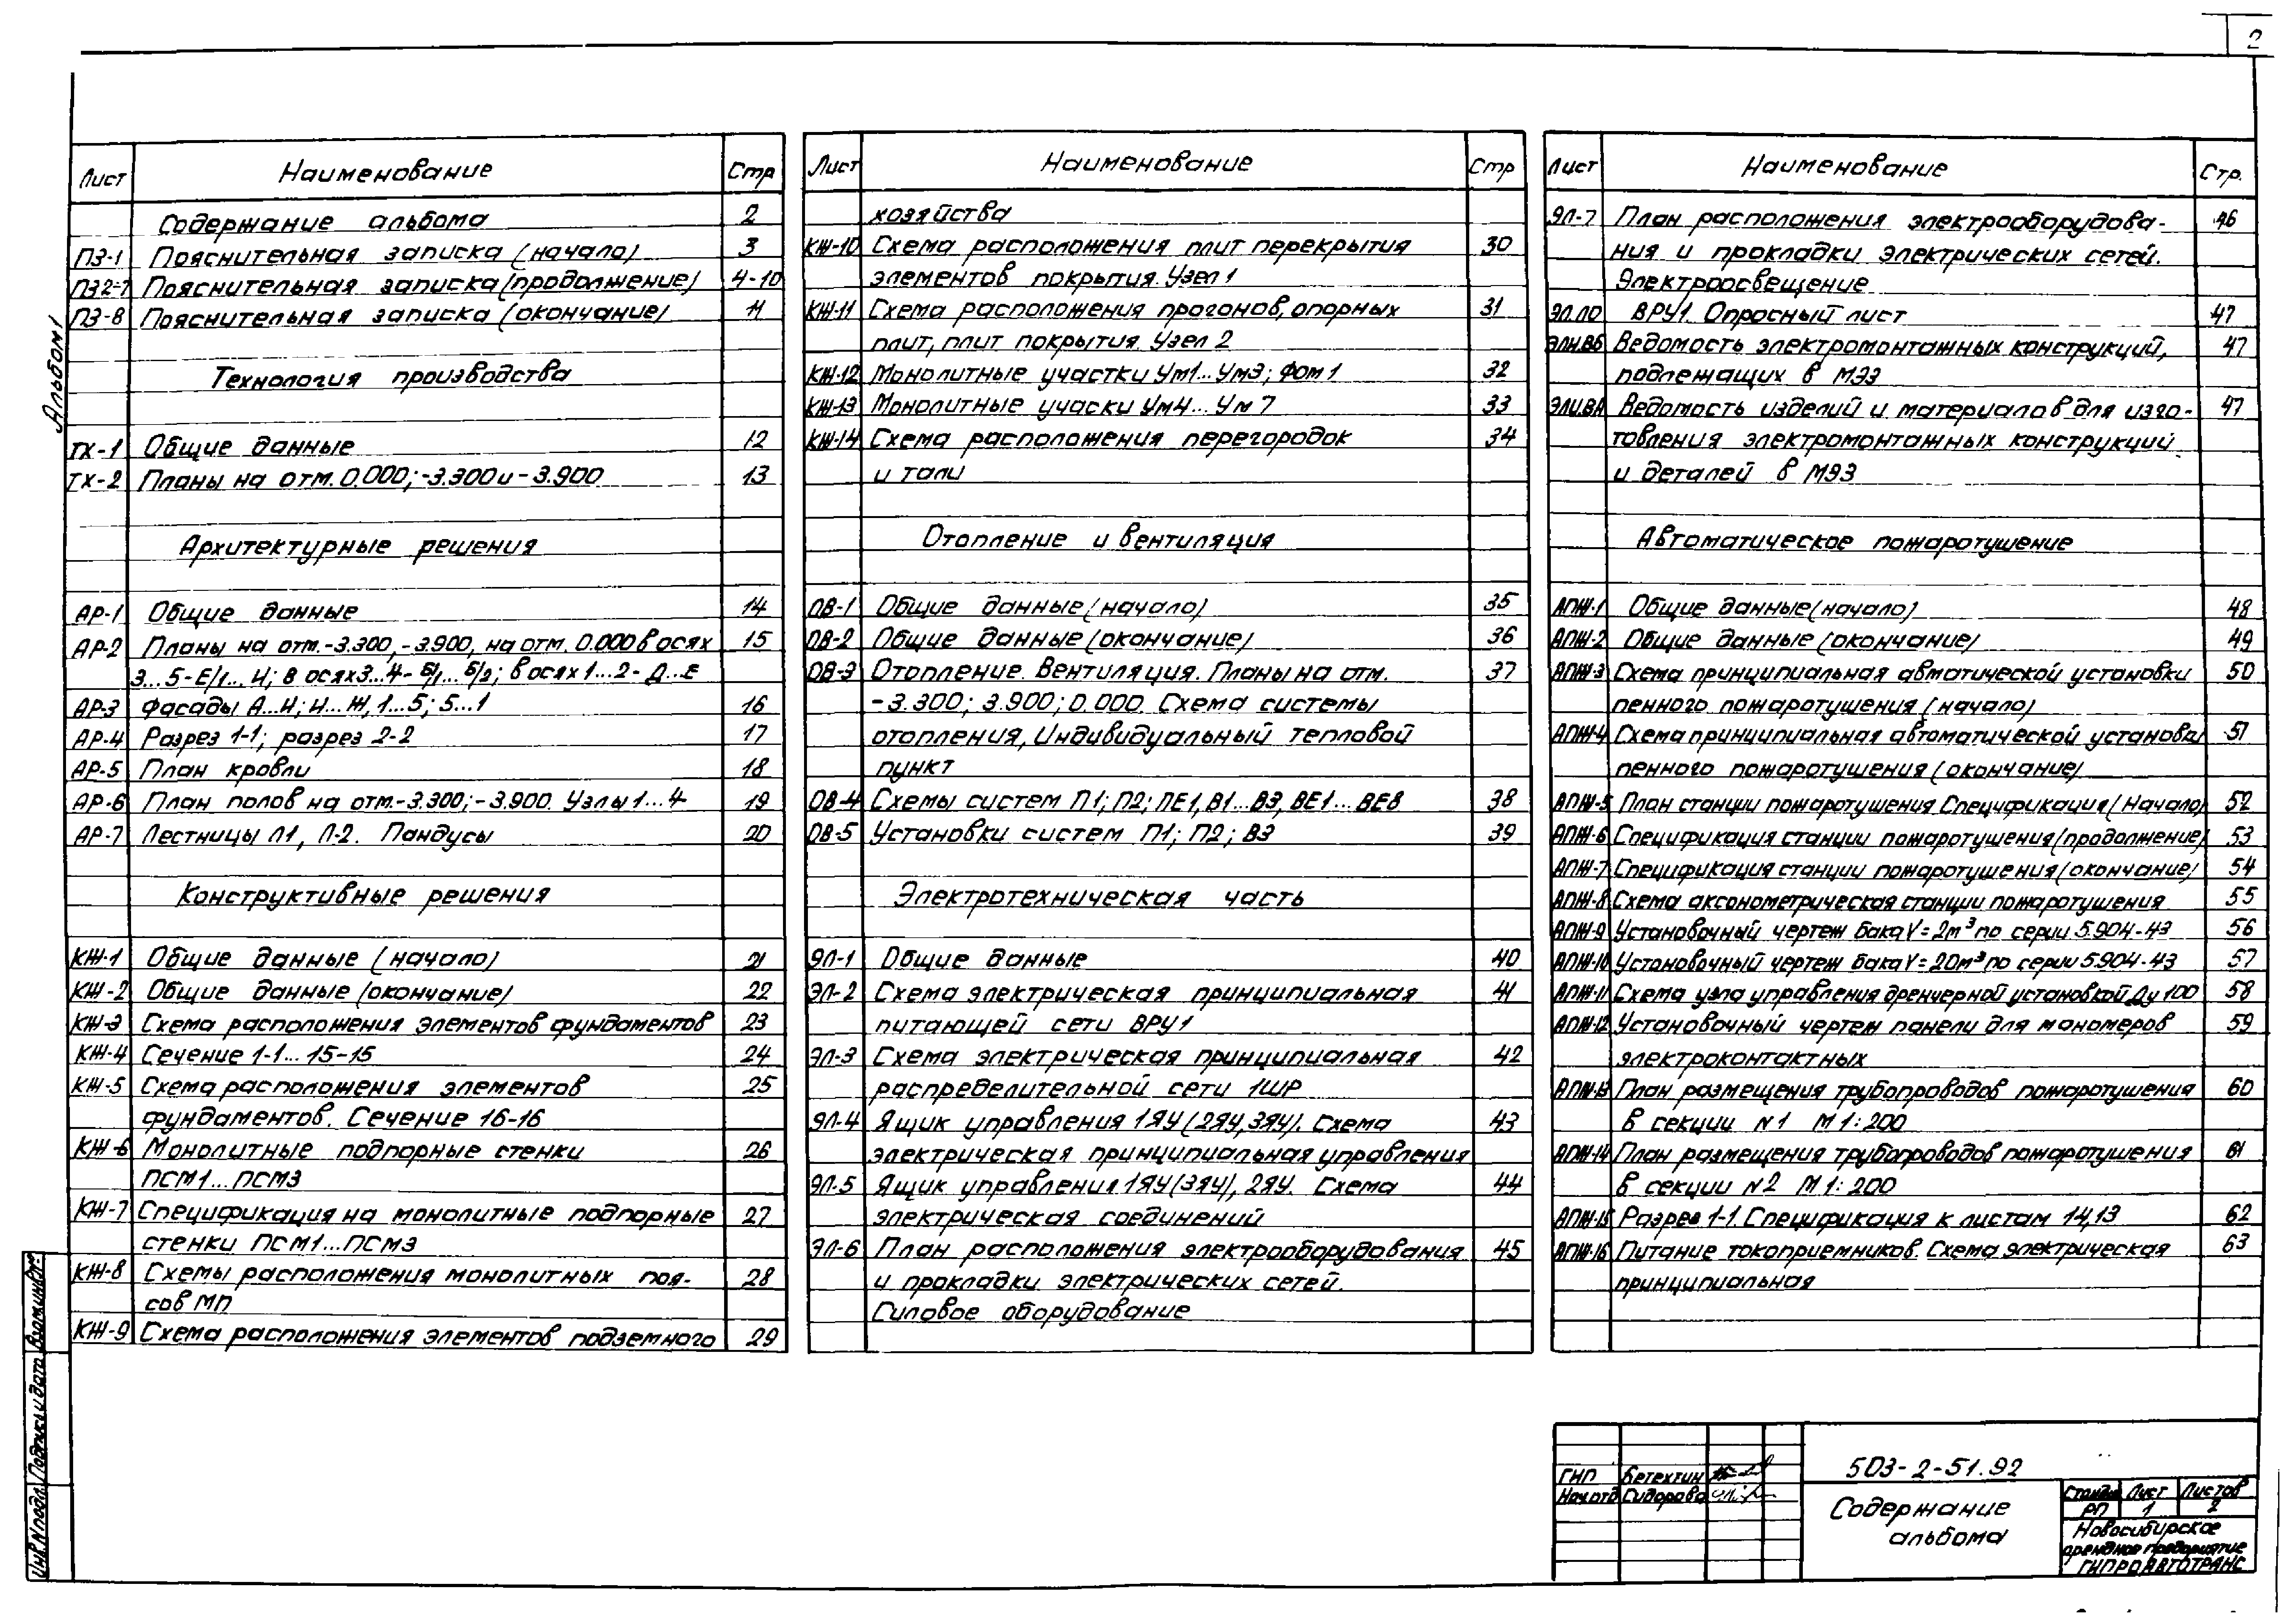 2
Альбом 1
Лист Наименование Стр
Содержание альбома 2
ПЗ-1 Пояснительная записка (начало) 3
ПЗ2-7 Пояснительная записка (продолжение) 4-10
ПЗ-8 Пояснительная записка (окончание) 11
Технология производства
ТХ-1 Общие данные 12
ТХ-2 Планы на отм. 0.000; -3.300 и -3.900 13
Архитектурные решения
АР-1 Общие данные 14
АР-2 Планы на отм. -3.300, -3.900, на отм. 0.000 в осях 15
3...5-Е/1...И; в осях 3...4- Б/1...Б/2; в осях 1...2- Д...Е
АР-3 Фасады А...И; И...Ж, 1...5; 5...1 16
АР-4 Разрез 1-1; разрез 2-2 17
АР-5 План кровли 18
АР-6 План полов на отм. -3.300; -3.900. Узлы 1...4 19
АР-7 Лестницы Л1, Л-2. Пандусы 20
Конструктивные решения
КЖ-1 Общие данные (начало) 21
КЖ-2 Общие данные (окончание) 22
КЖ-3 Схема расположения элементов фундаментов 23
КЖ-4 Сечение 1-1... 15-15 24
КЖ-5 Схема расположения элементов 25
фундаментов. Сечение 16-16
КЖ-6 Монолитные подпорные стенки 26
ПСМ1...ПСМ3
КЖ-7 Спецификация на монолитные подпорные 27
стенки ПСМ1...ПСМ3
КЖ-8 Схемы расположения монолитных поя- 28
сов МП
КЖ-9 Схема расположения элементов подземного 29
Лист Наименование Стр
хозяйства
КЖ-10 Схема расположения плит перекрытия 30
элементов покрытия. Узел 1
КЖ-11 Схема расположения прогонов, опорных 31
плит, плит покрытия. Узел 2
КЖ-12 Монолитные участки Ум1... Ум3; Фом 1 32
КЖ-13 Монолитные учаски Ум4... Ум 7 33
КЖ-14 Схема расположения перегородок 34
и тали
Отопление и вентиляция
ОВ-1 Общие данные (начало) 35
ОВ-2 Общие данные (окончание) 36
ОВ-3 Отопление. Вентиляция. Планы на отм. 37
-3.300; 3.900; 0.000. Схема системы
отопления, Индивидуальный тепловой
пункт
ОВ-4 Схемы систем П1; П2; ПЕ1, В1...В3, ВЕ1...ВЕ8 38
ОВ-5 Установки систем П1; П2; В3 39
Электротехническая часть
ЭЛ-1 Общие данные 40
ЭЛ-2 Схема электрическая принципиальная 41
питающей сети ВРУ1
ЭЛ-3 Схема электрическая принципиальная 42
распределительной сети 1ШР
ЭЛ-4 Ящик управления 1ЯУ (2ЯУ, 3ЯУ). Схема 43
электрическая принципиальная управления
ЭЛ-5 Ящик управления 1ЯУ (3ЯУ), 2ЯУ. Схема 44
электрическая соединений
ЭЛ-6 План расположения электрооборудования 45
и прокладки электрических сетей.
Силовое оборудование
Лист Наименование Стр.
ЭЛ-7 План расположения электрооборудова- 46
ния и прокладки электрических сетей.
Электроосвещение
ЭЛ.ЛО ВРУ1. Опросный лист 47
ЭЛИ.ВБ Ведомость электромонтажных конструкций, 47
подлежащих в МЭЗ
ЭЛИ.ВА Ведомость изделий и материалов для изго- 47
товления электромонтажных конструкций
и деталей в МЭЗ
Автоматическое пожаротушение
АПЖ-1 Общие данные (начало) 48
АПЖ-2 Общие данные (окончание) 49
АПЖ-3 Схема принципиальная автматической установки 50
пенного пожаротушения (начало)
АПЖ-4 Схема принципиальная автоматической установки 51
пенного пожаротушения (окончание)
АПЖ-5 План станции пожаротушения Спецификация (Начало) 52
АПЖ-6 Спецификация станции пожаротушения (продолжение) 53
АПЖ-7 Спецификация станции пожаротушения (окончание) 54
АПЖ-8 Схема аксонометрическая станции пожаротушения 55
АПЖ-9 Установочный чертеж бака V=2м³ по серии 5.904-43 56
АПЖ-10 Установочный чертеж бака V=20м³ по серии 5.904-43 57
АПЖ-11 Схема узла управления дренчерной установкой Ду 100 58
АПЖ-12 Установочный чертеж панели для маномеров 59
электроконтактных
АПЖ-13 План размещения трубопроводов пожаротушения 60
в секции N1 М 1:200
АПЖ-14 План размещения трубопроводов пожаротушения 61
в секции N2 М 1:200
АПЖ-15 Разрез 1-1. Спецификация к листам 14,13 62
АПЖ-16 Питание токоприемников. Схема электрическая 63
принципиальная
Инв.N подл. Подпись и дата Взам.инв.N
503-2-51.92
ГИП Бетехтин
Нач.отд Сидорова
Содержание
альбома
Стадия Лист Листов
РП 1 2
Новосибирское
арендное предприятие
ГИПРОАВТОТРАНС